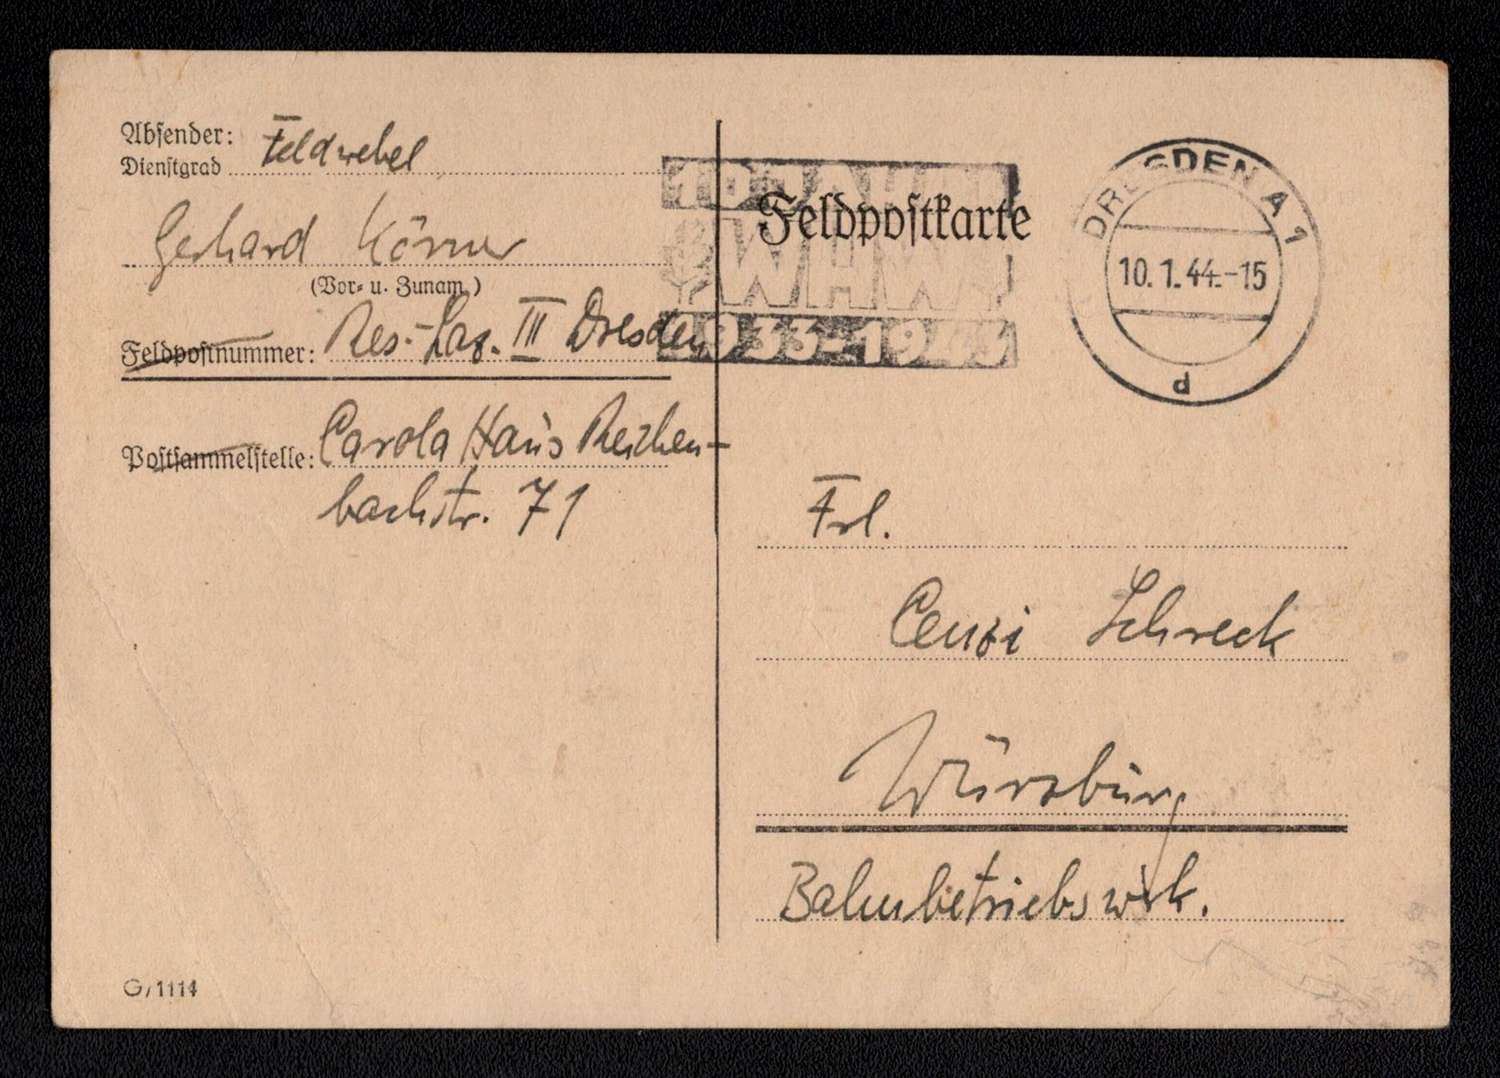 Absender:
Dienstgrad Feldwebel
Gerhard Körner
(Vor- u. Zunam.)
Feldpostnummer: Res.-Laz. III Dresden
Postsammelstelle: Carola Haus Reichen-
bachstr. 71
G/1114
10 JAHRE
WHW
1933-1943
Feldpostkarte
DRESDEN A 1
10.1.44.-15
d
Frl.
Cenzi Schreck
Würzburg
Bahnbetriebswerk.